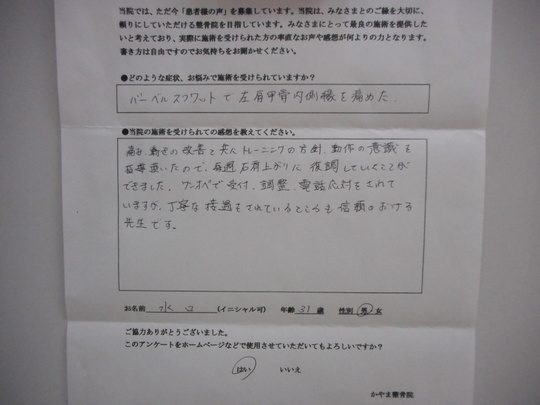 当院では、ただ今「患者様の声」を募集しています。当院は、みなさまとのご縁を大切に、
頼りにしていただける整骨院を目指しています。みなさまにとって最良の施術を提供した
いと考えており、実際に施術を受けられた方の率直なお声や感想が何よりの力となります。
書き方は自由ですのでお気持ちをお聞かせください。
●どのような症状、お悩みで施術を受けられていますか?
バーベルスクワットで左肩甲骨内側縁を痛めた。
●当院の施術を受けられての感想を教えてください。
痛み、動きの改善と共にトレーニングの方針、動作の意識も
指導頂いたので、毎週右肩上がりに復調していくことが
できました。ワンオペで受付、調整、電話応対をされて
いますが、丁寧な接遇をされているところも信頼のおける
先生です。
お名前 水口 (イニシャル可) 年齢 31 歳 性別 男 女
ご協力ありがとうございました。
このアンケートをホームページなどで使用させていただいてもよろしいですか?
はい いいえ
かやま整骨院